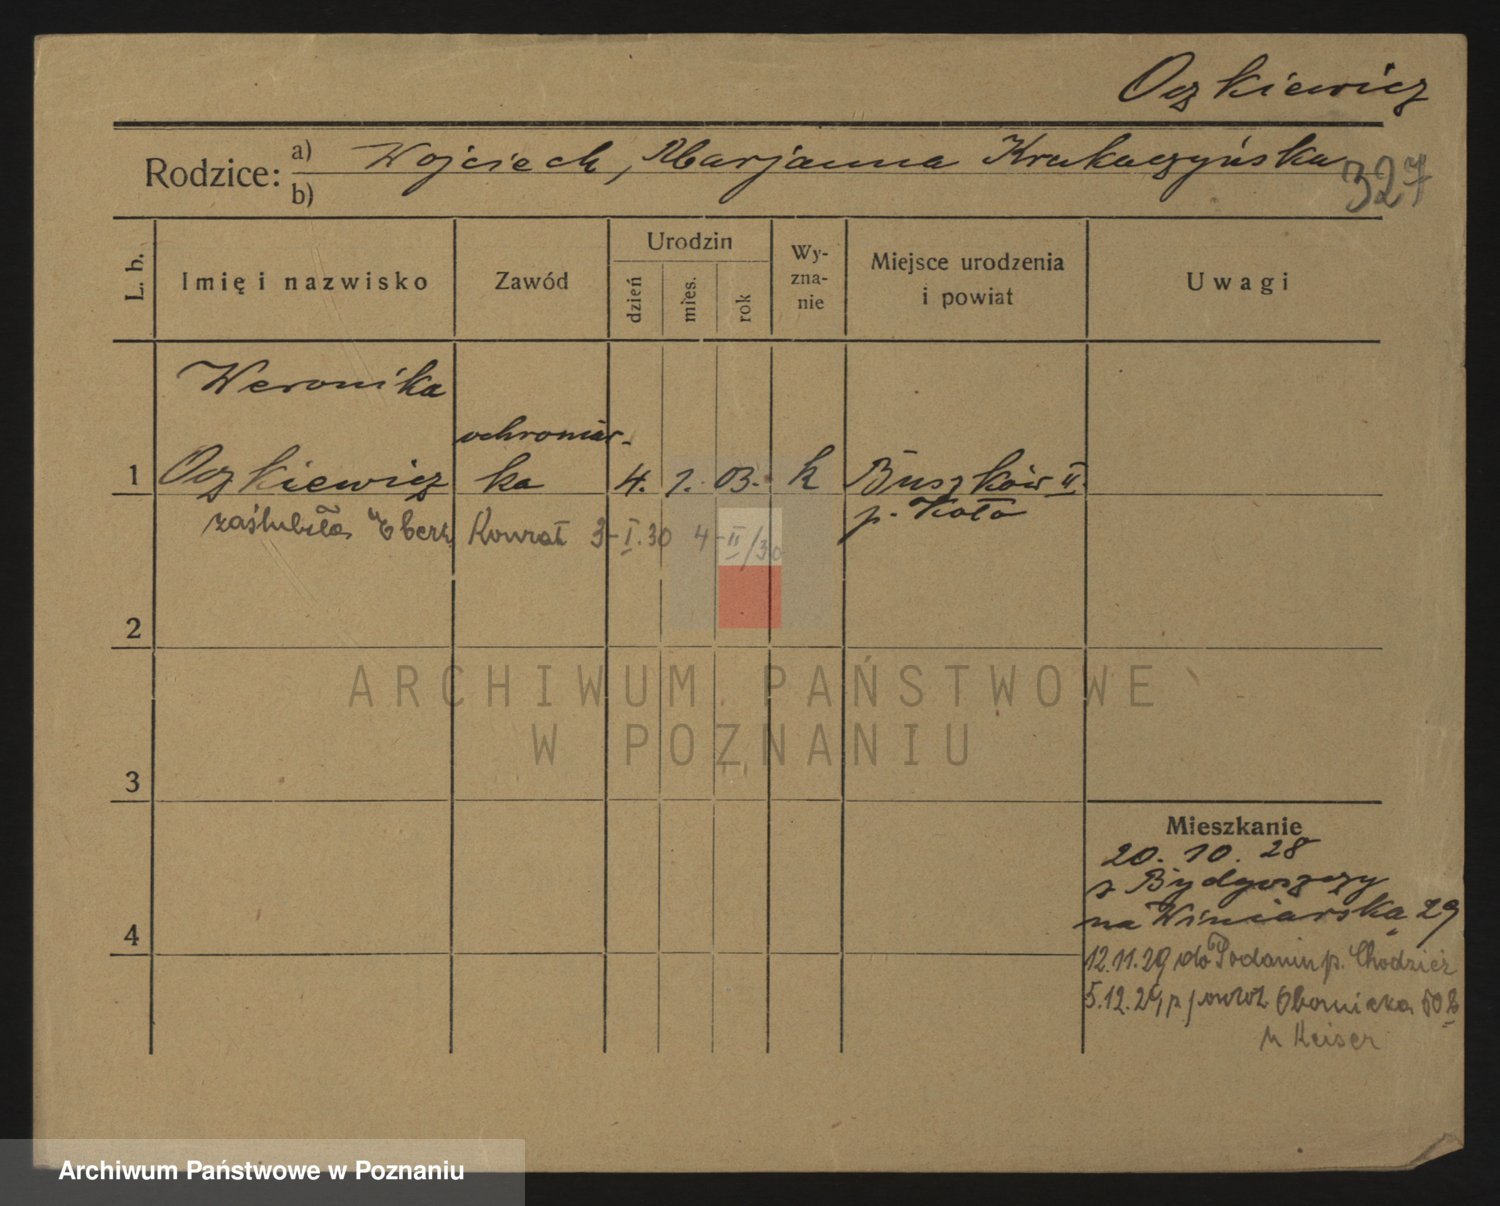 Oczkiewicz
Rodzice: a) Wojciech, Marjanna Krukaczyńska
b)
327
L. b.
Imię i nazwisko
Zawód
Urodzin
dzień
mies.
rok
Wy-
zna-
nie
Miejsce urodzenia
i powiat
Uwagi
Weronika
ochroniar-
1 Oczkiewicz ka 4. 1. 03. k Buszków II.
p. Koło
zaślubiła Ebert Konrat 3-I.30 4-II/30
2
3
4
ARCHIWUM PAŃSTWOWE
W POZNANIU
Mieszkanie
20. 10. 28
z Bydgoszczy
na Winiarska 29
12.11.29 do Podanin p. Chodzież
5.12.29 powrót Obornicka 50
u Keiser
Archiwum Państwowe w Poznaniu